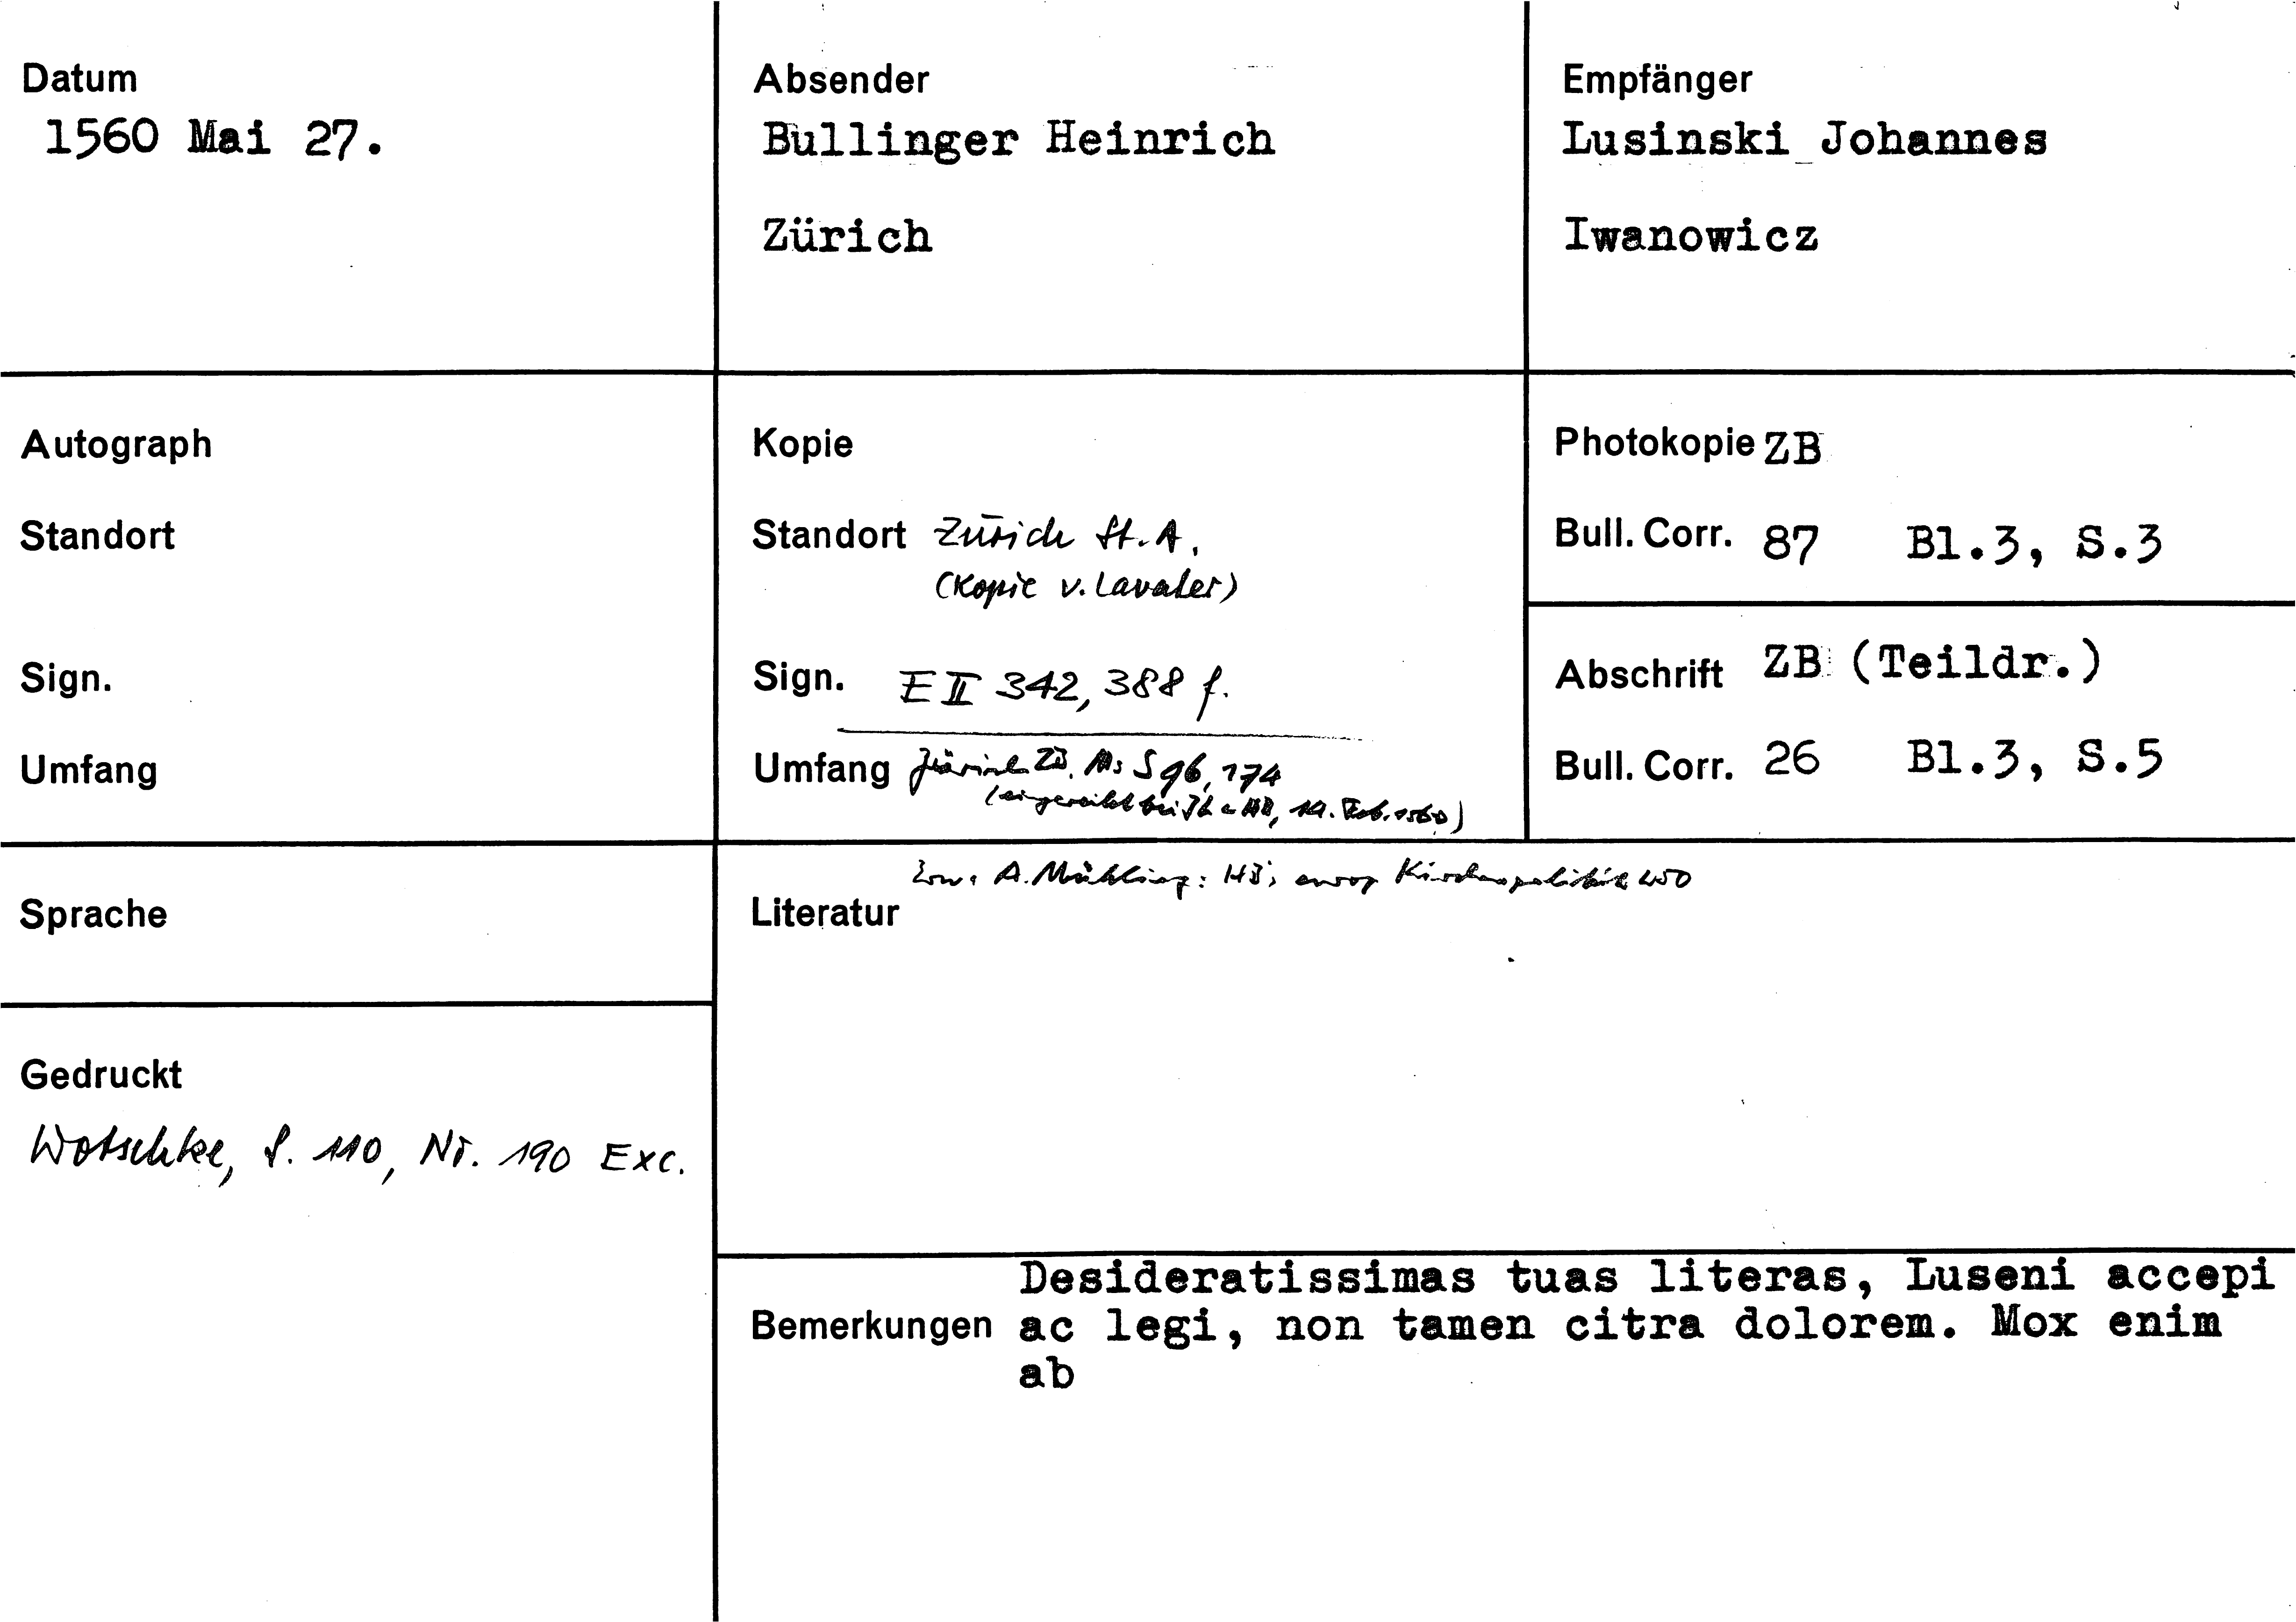 Datum
1560 Mai 27.
Absender
Bullinger Heinrich
Zürich
Empfänger
Lusinski Johannes
Iwanowicz
Autograph
Standort
Sign.
Umfang
Kopie
Standort Zürich St. A.
(Kopie v. Lavater)
Sign. E II 342, 388 f.
Umfang Zürich ZB, Ms S 96, 174
(eingereiht bei JL a HB, 14. Feb. 1560)
Photokopie ZB
Bull. Corr. 87 Bl.3, S.3
Abschrift ZB (Teildr.)
Bull. Corr. 26 Bl.3, S.5
Sprache
A. Mühling: HBs europ Kirchenpolitik
Literatur
Gedruckt
Wotschke, S. 110, Nr. 190 Exc.
Desideratissimas tuas literas, Luseni accepi
Bemerkungen ac legi, non tamen citra dolorem. Mox enim
ab